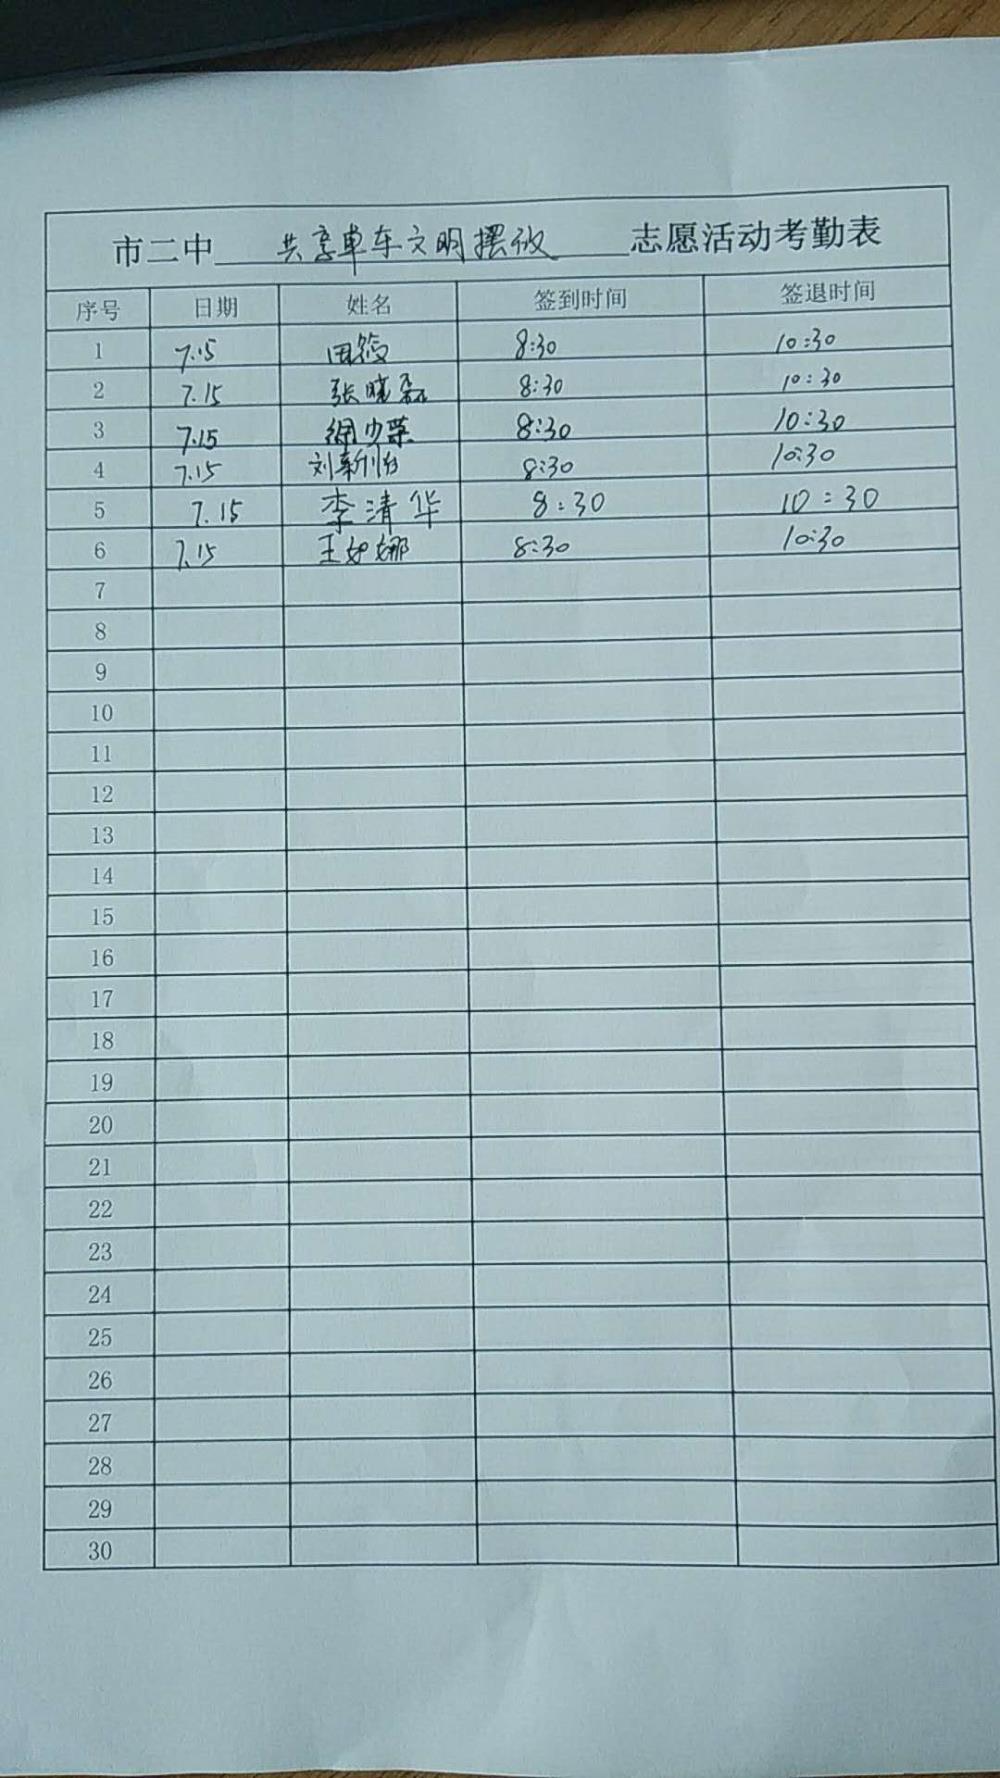 市二中 共享单车文明摆放 志愿活动考勤表
序号 日期 姓名 签到时间 签退时间
1 7.15 田筱 8:30 10:30
2 7.15 张晓磊 8:30 10:30
3 7.15 8:30 10:30
4 7.15 8:30 10:30
5 7.15 李清华 8:30 10:30
6 7.15 王如娜 8:30 10:30
7
8
9
10
11
12
13
14
15
16
17
18
19
20
21
22
23
24
25
26
27
28
29
30